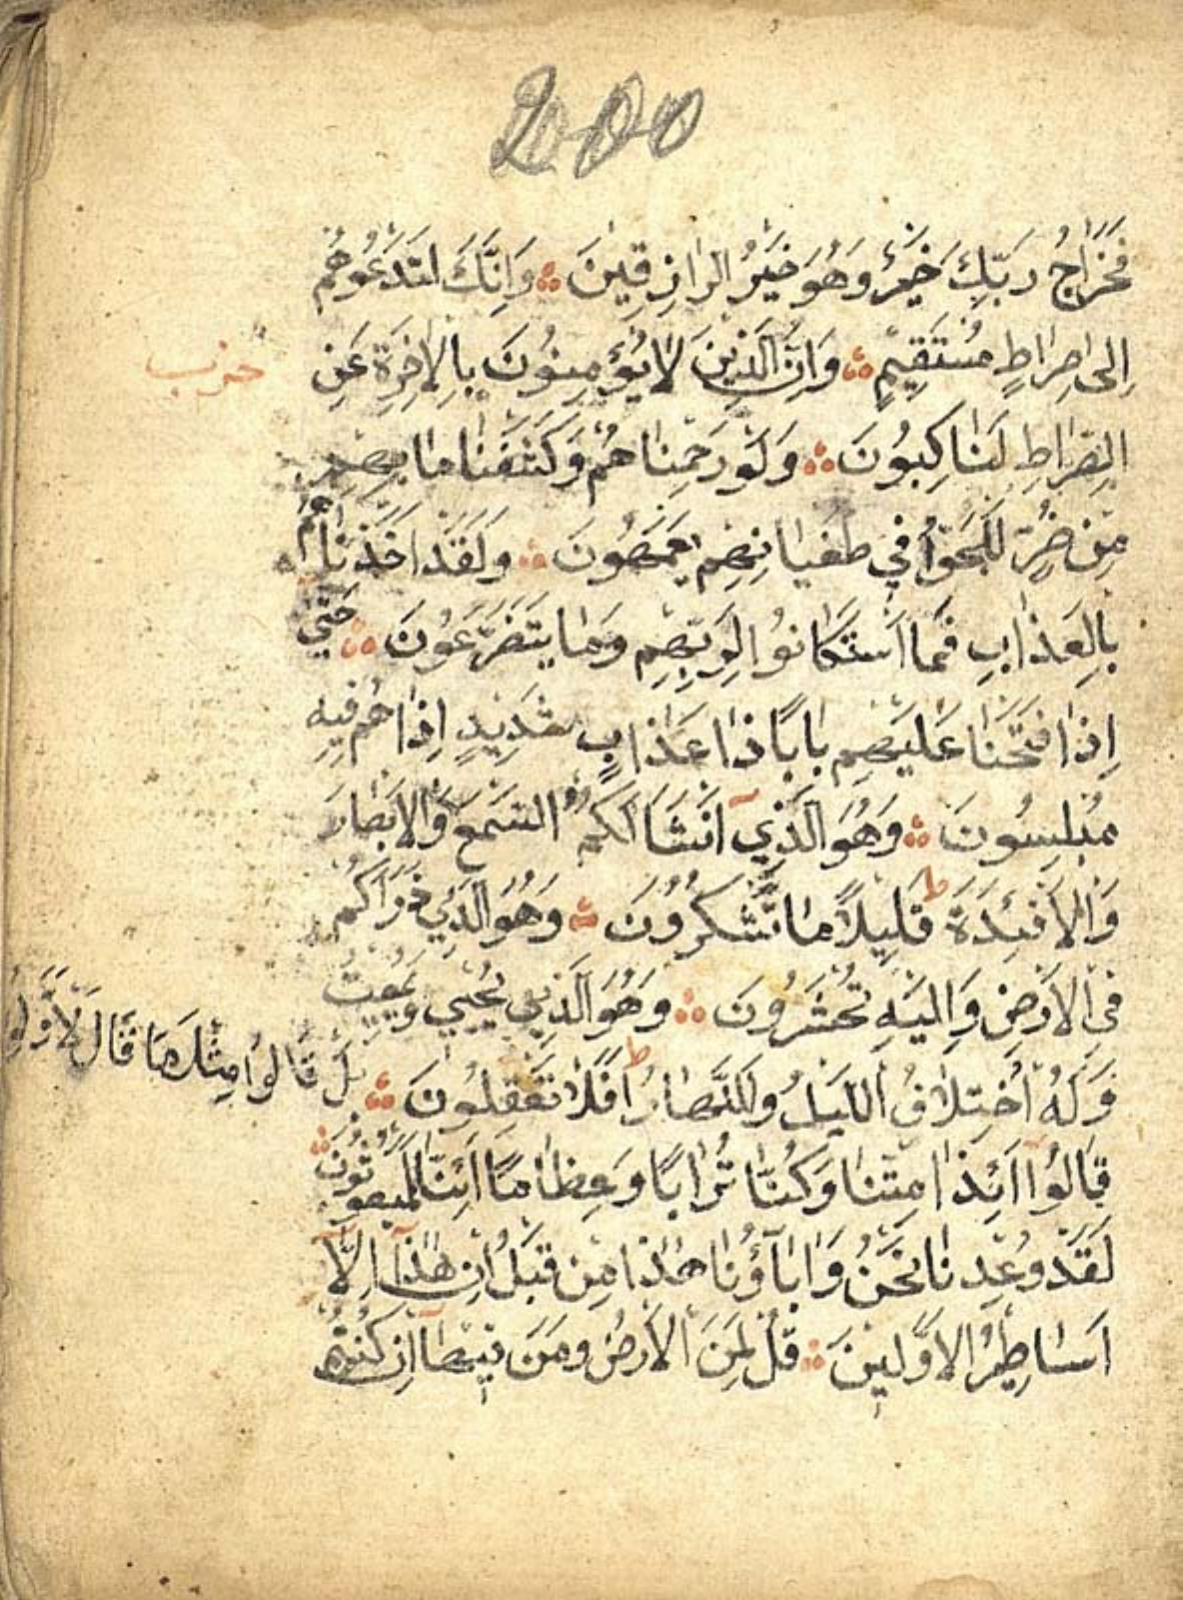 200
فَخَرَاجُ رَبِّكَ خَيْرٌ وَهُوَ خَيْرُ الرَّازِقِينَ وَاِنَّكَ لَتَدْعُوهُمْ
اِلَى صِرَاطٍ مُسْتَقِيمٍ وَاِنَّ الَّذِينَ لَا يُؤْمِنُونَ بِالْاٰخِرَةِ عَنِ
حزب
الصِّرَاطِ لَنَاكِبُونَ وَلَوْ رَحِمْنَاهُمْ وَكَشَفْنَا مَا بِهِمْ
مِنْ ضُرٍّ لَلَجُّوا فِي طُغْيَانِهِمْ يَعْمَهُونَ وَلَقَدْ اَخَذْنَاهُمْ
بِالْعَذَابِ فَمَا اسْتَكَانُوا لِرَبِّهِمْ وَمَا يَتَضَرَّعُونَ حَتَّى
اِذَا فَتَحْنَا عَلَيْهِمْ بَابًا ذَا عَذَابٍ شَدِيدٍ اِذَا هُمْ فِيهِ
مُبْلِسُونَ وَهُوَ الَّذِي اَنْشَاَ لَكُمُ السَّمْعَ وَالْاَبْصَارَ
وَالْاَفْئِدَةَ ط قَلِيلًا مَا تَشْكُرُونَ وَهُوَ الَّذِي ذَرَاَكُمْ
فِي الْاَرْضِ وَاِلَيْهِ تُحْشَرُونَ وَهُوَ الَّذِي يُحْيِي وَيُمِيتُ
وَلَهُ اخْتِلَافُ اللَّيْلِ وَالنَّهَارِ ط اَفَلَا تَعْقِلُونَ
بَلْ قَالُوا مِثْلَ مَا قَالَ لْاَوَّلُو
قَالُوا اَئِذَا مِتْنَا وَكُنَّا تُرَابًا وَعِظَامًا اَئِنَّا لَمَبْعُوثُونَ
لَقَدْ وُعِدْنَا نَحْنُ وَاٰبَاۤؤُنَا هٰذَا مِنْ قَبْلُ اِنْ هٰذَا اِلَّا
اَسَاطِيرُ الْاَوَّلِينَ قُلْ لِمَنِ الْاَرْضُ وَمَنْ فِيهَا اِنْ كُنْتُمْ